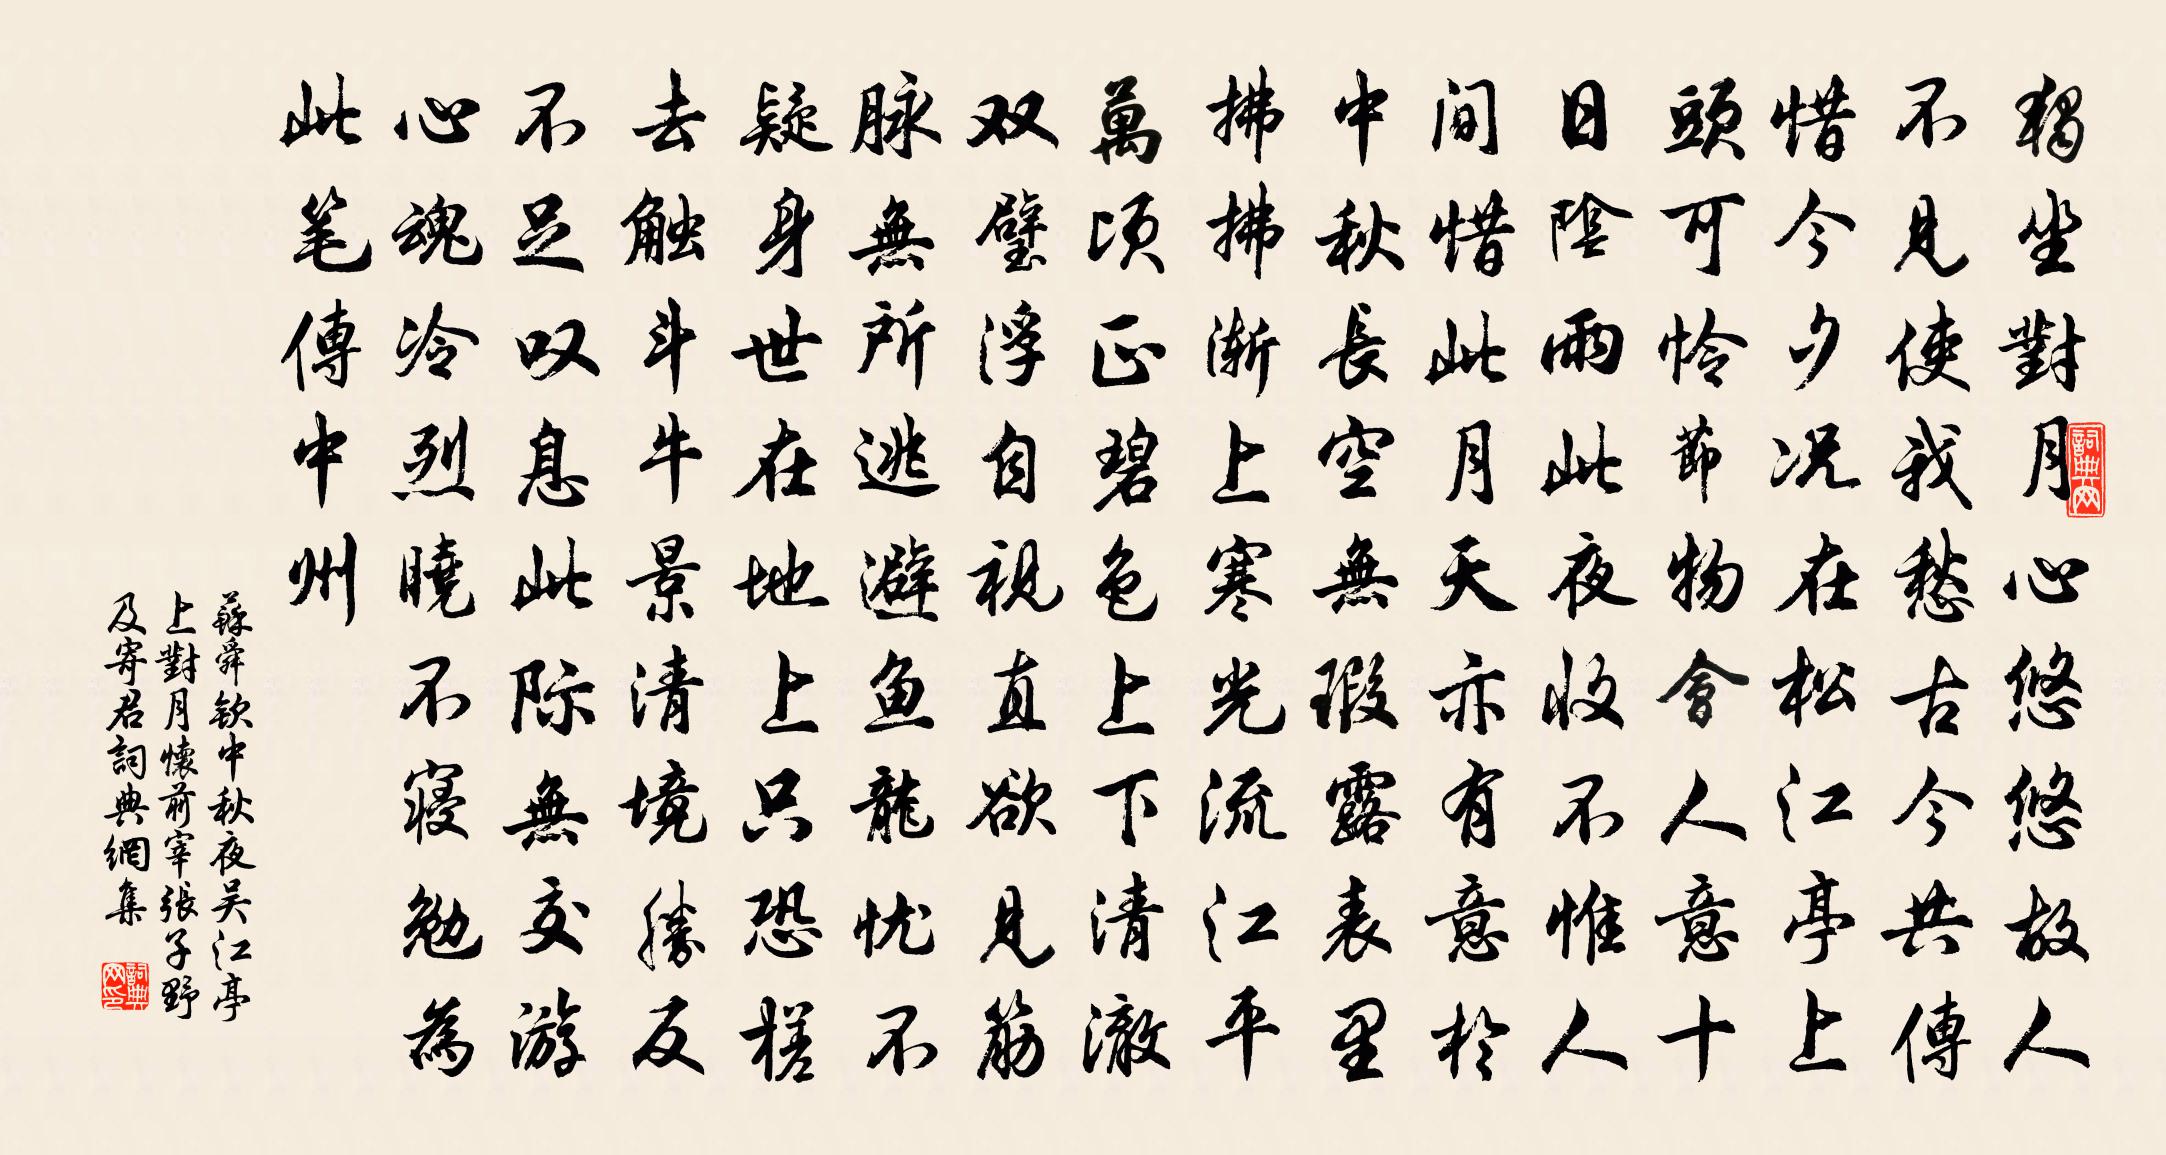 獨坐對月心悠悠故人
不見使我愁古今共傳
惜今夕况在松江亭上
頭可怜節物會人意十
日陰雨此夜收不惟人
间惜此月天亦有意於
中秋長空無瑕露表里
拂拂渐上寒光流江平
萬顷正碧色上下清澈
双璧浮自視直欲見筋
脉無所逃避鱼龍忧不
疑身世在地上只恐槎
去触斗牛景清境勝反
不足叹息此际無交游
心魂冷烈曉不寝勉為
此笔傳中州
蘇舜钦中秋夜吴江亭
上對月懷前宰張子野
及寄君詞典網集
詞典网
詞典网印